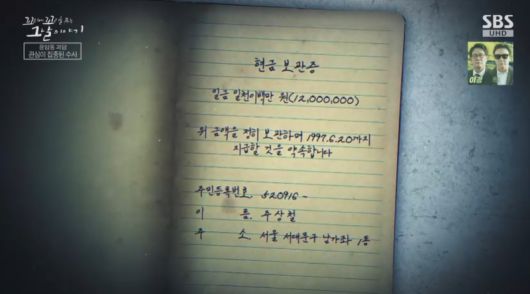 꼬리에 꼬리를 무는
그날 이야기
관심이 집중된 수사
SBS
UHD
현금 보관증
일금 일천이백만 원(12,000,000)
위 금액을 정히 보관하며 1997.6.20까지
지급할 것을 약속합니다
주민등록번호. 520916 -
이 름. 주상철
주 소. 서울 서대문구 남가좌 1동